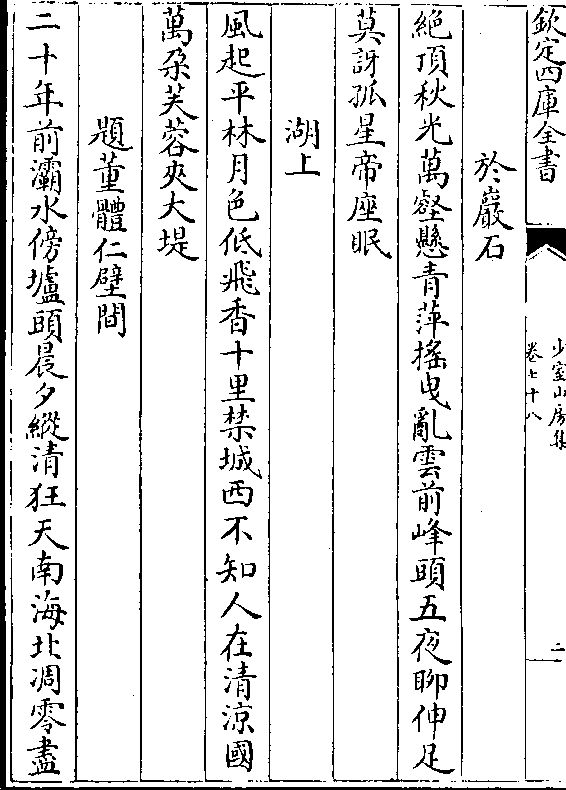 欽定四庫全書
少室山房集
卷七十八
二
於巖石
絕頂秋光萬壑懸青萍搖曳亂雲前峰頭五夜聊伸足
莫訝孤星帝座眠
湖上
風起平林月色低飛香十里禁城西不知人在清涼國
萬朶芙蓉夾大堤
題董體仁壁間
二十年前灞水傍壚頭晨夕縱清狂天南海北凋零盡